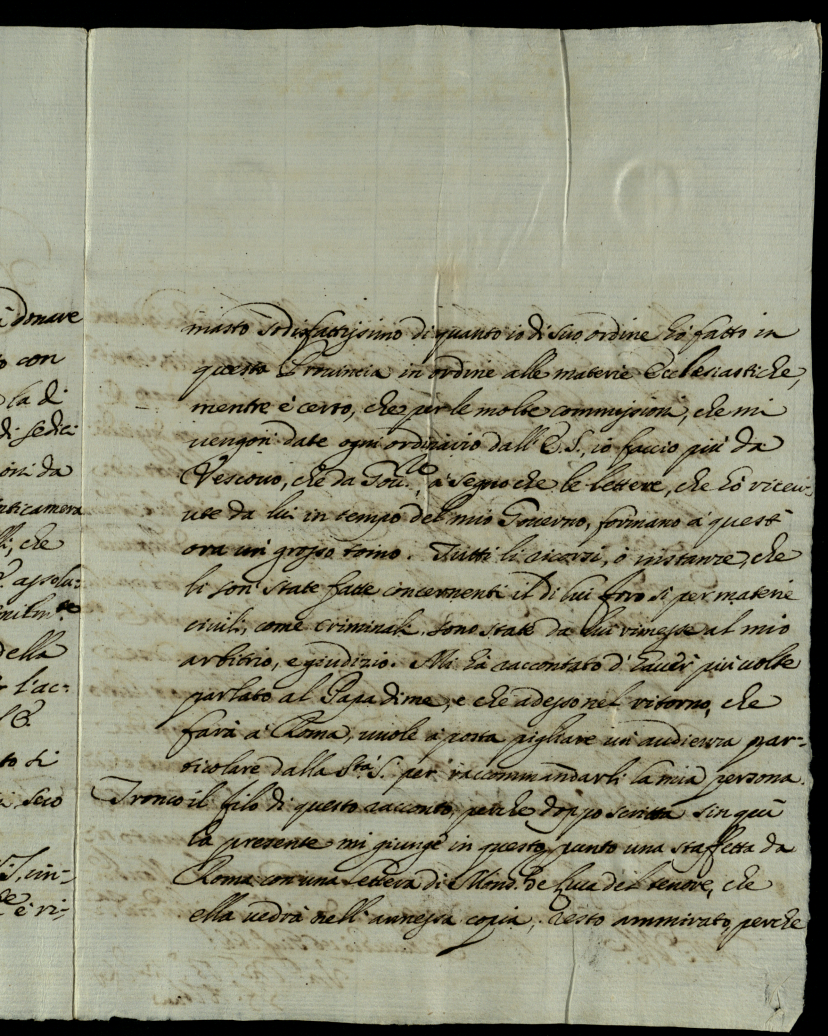 donare
con
la di
di sedici
oni da
nticamera
lli, che
assolu=
della
l'ac=
to di
seco
è ri=
masto sodisfattissimo di quanto io di suo ordine hò fatto in
questa Prouincia in ordine alle materie Ecclesiastiche,
mentre è certo, che per le molte commissioni, che mi
uengon' date ogni ordinario dall' E. S., io faccio più da
Vescouo, che da Gou.re, à segno che le lettere, che hò riceu=
ute da lui in tempo del mio Gouerno, formano à quest'
ora un' grosso tomo. Tutti li ricorsi, ò instanze, che
li son' state fatte concernenti il di lui foro si per materie
ciuili, come criminali, sono state da lui rimesse al mio
arbitrio, e giudizio. Mi hà raccontato d'hauer' più uolte
parlato al Papa di me, e che adesso nel ritorno, che
farà à Roma, uuole à posta pigliare un' audienza par=
ticolare dalla S.tà S. per' raccommandarli la mia persona.
Tronco il filo di questo racconto, perche doppo scritta sin quì
la presente mi giunge in questo punto una staffetta da
Roma con una lettera di Mons.r de Luca del tenore, che
ella uedrà nell' annessa copia, resto ammirato, perche